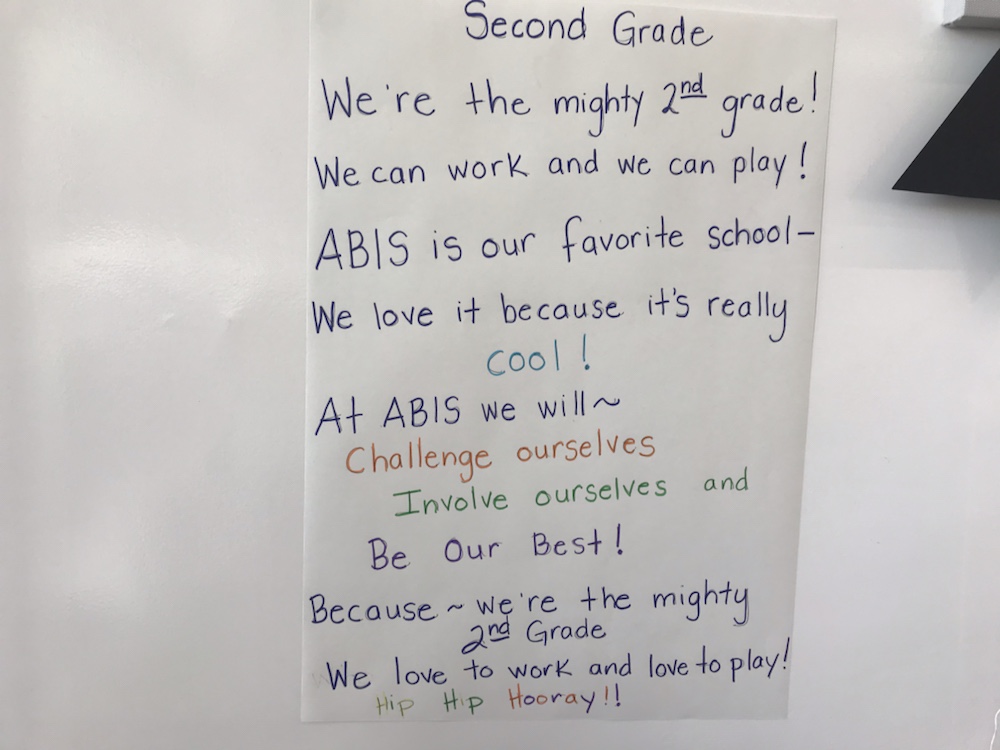 Second Grade
We're the mighty 2nd grade!
We can work and we can play!
ABIS is our favorite school-
We love it because it's really
cool!
At ABIS we will~
Challenge ourselves
Involve ourselves and
Be Our Best!
Because ~ we're the mighty
2nd Grade
We love to work and love to play!
Hip Hip Hooray!!